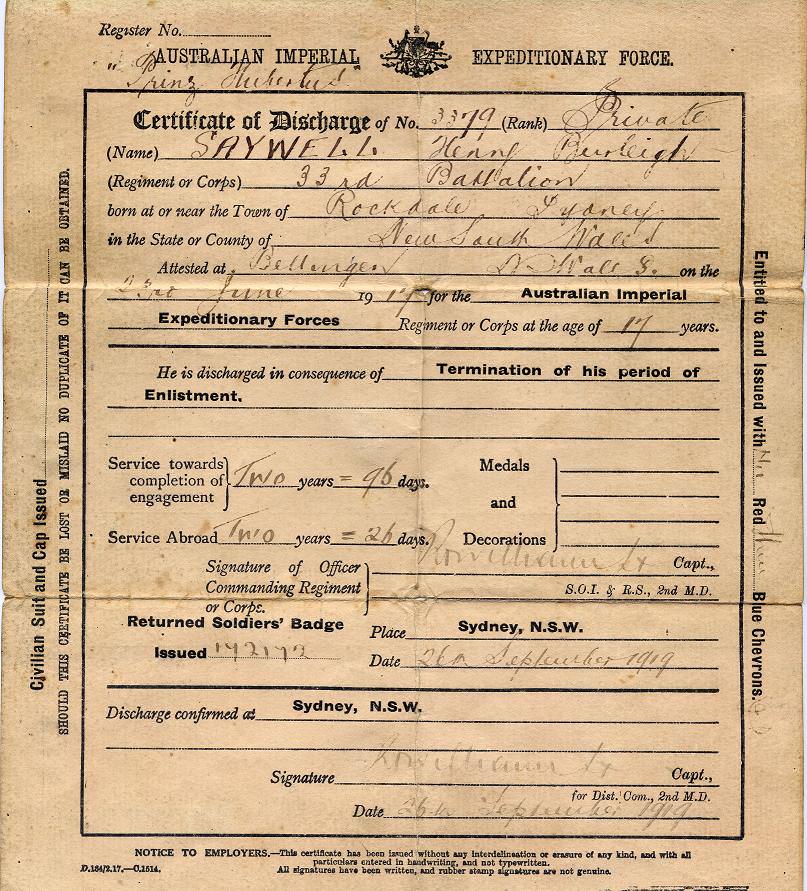 Register No.
AUSTRALIAN IMPERIAL EXPEDITIONARY FORCE.
"Prinz Hubertus"
Certificate of Discharge of No. 3379 (Rank) Private
(Name) SAYWELL Henry Burleigh
(Regiment or Corps) 33rd Battalion
born at or near the Town of Rockdale Sydney
in the State or County of New South Wales
Attested at Bellingen N. Wales. on the
23rd June 1917 for the Australian Imperial
Expeditionary Forces Regiment or Corps at the age of 17 years.
He is discharged in consequence of Termination of his period of
Enlistment.
Service towards completion of engagement } Two years = 96 days.
Medals and Decorations }
Service Abroad Two years = 26 days.
Signature of Officer Commanding Regiment or Corps. } Capt.,
S.O.I. & R.S., 2nd M.D.
Returned Soldiers' Badge
Issued 142172
Place Sydney, N.S.W.
Date 26th September 1919
Discharge confirmed at Sydney, N.S.W.
Signature Capt.,
for Dist. Com., 2nd M.D.
Date 26th September 1919
NOTICE TO EMPLOYERS.—This certificate has been issued without any interdelineation or erasure of any kind, and with all
particulars entered in handwriting, and not typewritten.
All signatures have been written, and rubber stamp signatures are not genuine.
D.184/2.17.—C.1514.
Civilian Suit and Cap Issued
SHOULD THIS CERTIFICATE BE LOST OR MISLAID NO DUPLICATE OF IT CAN BE OBTAINED.
Entitled to and Issued with Nil Red Three Blue Chevrons.